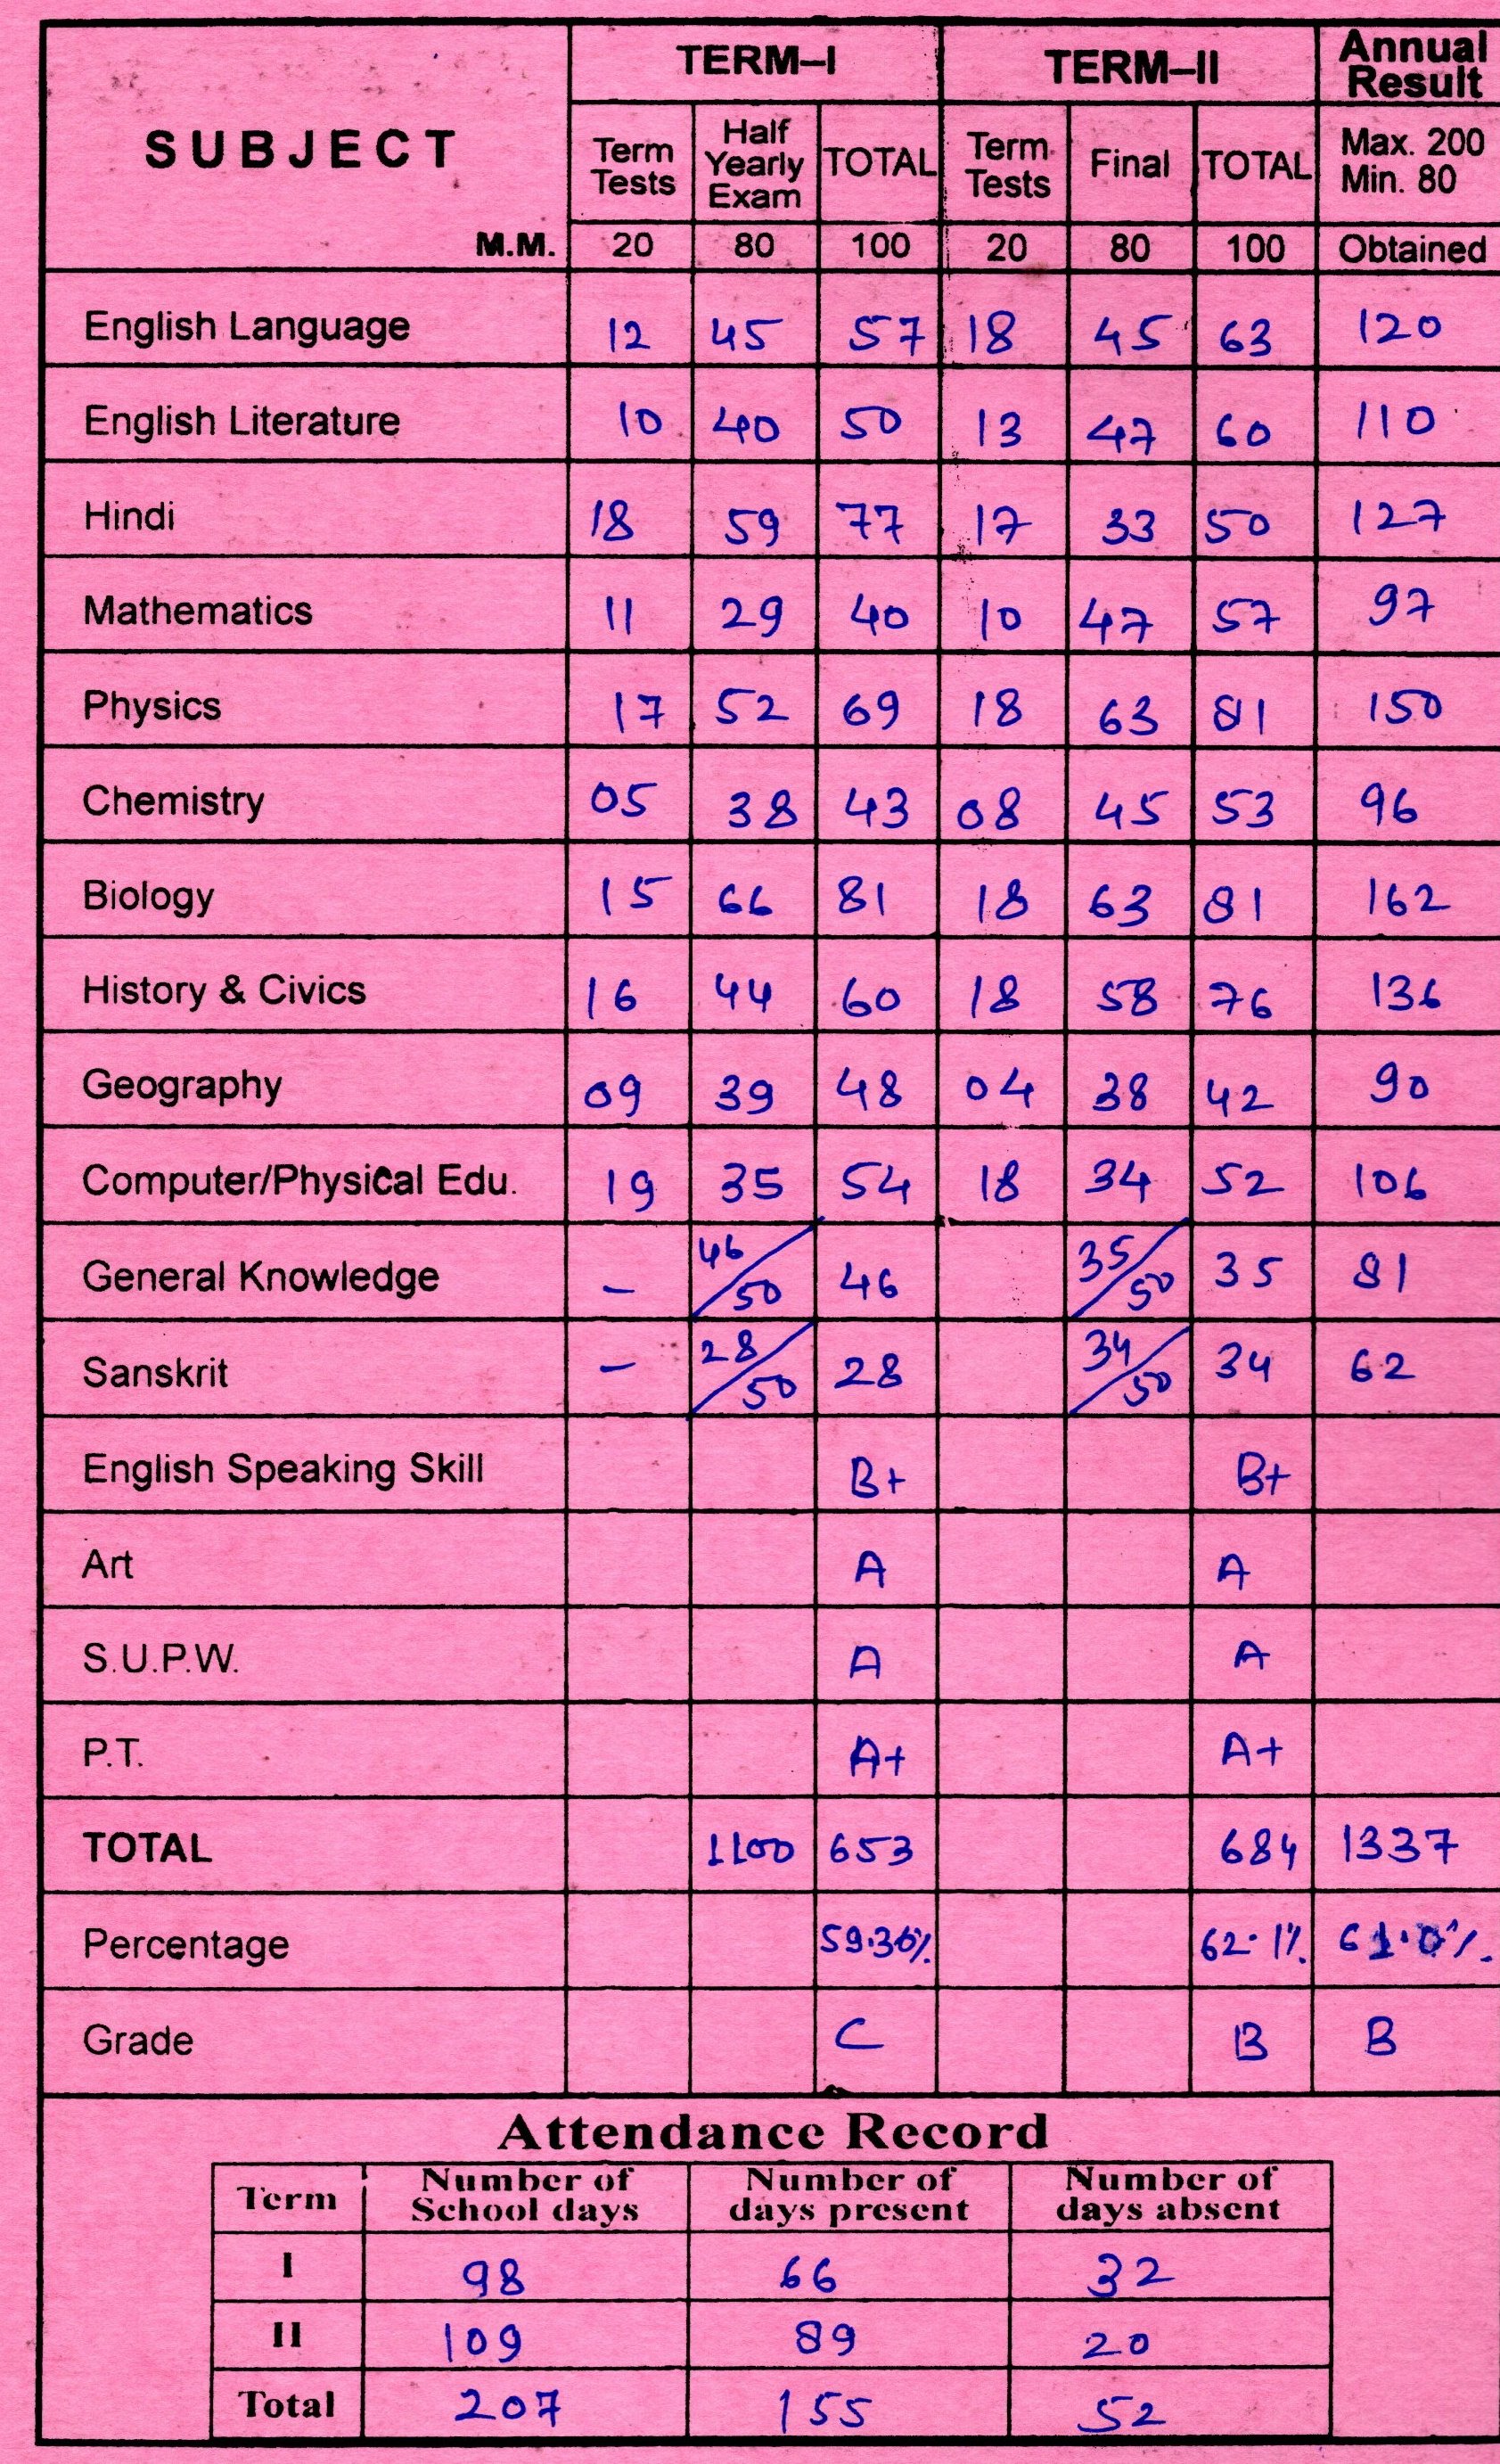 SUBJECT TERM–I TERM–II Annual Result
Term Tests Half Yearly Exam TOTAL Term Tests Final TOTAL Max. 200 Min. 80
M.M. 20 80 100 20 80 100 Obtained
English Language 12 45 57 18 45 63 120
English Literature 10 40 50 13 47 60 110
Hindi 18 59 77 17 33 50 127
Mathematics 11 29 40 10 47 57 97
Physics 17 52 69 18 63 81 150
Chemistry 05 38 43 08 45 53 96
Biology 15 66 81 18 63 81 162
History & Civics 16 44 60 18 58 76 136
Geography 09 39 48 04 38 42 90
Computer/Physical Edu. 19 35 54 18 34 52 106
General Knowledge – 46/50 46 35/50 35 81
Sanskrit – 28/50 28 34/50 34 62
English Speaking Skill B+ B+
Art A A
S.U.P.W. A A
P.T. A+ A+
TOTAL 1100 653 684 1337
Percentage 59.36% 62.1% 61.0%
Grade C B B
Attendance Record
Term Number of School days Number of days present Number of days absent
I 98 66 32
II 109 89 20
Total 207 155 52